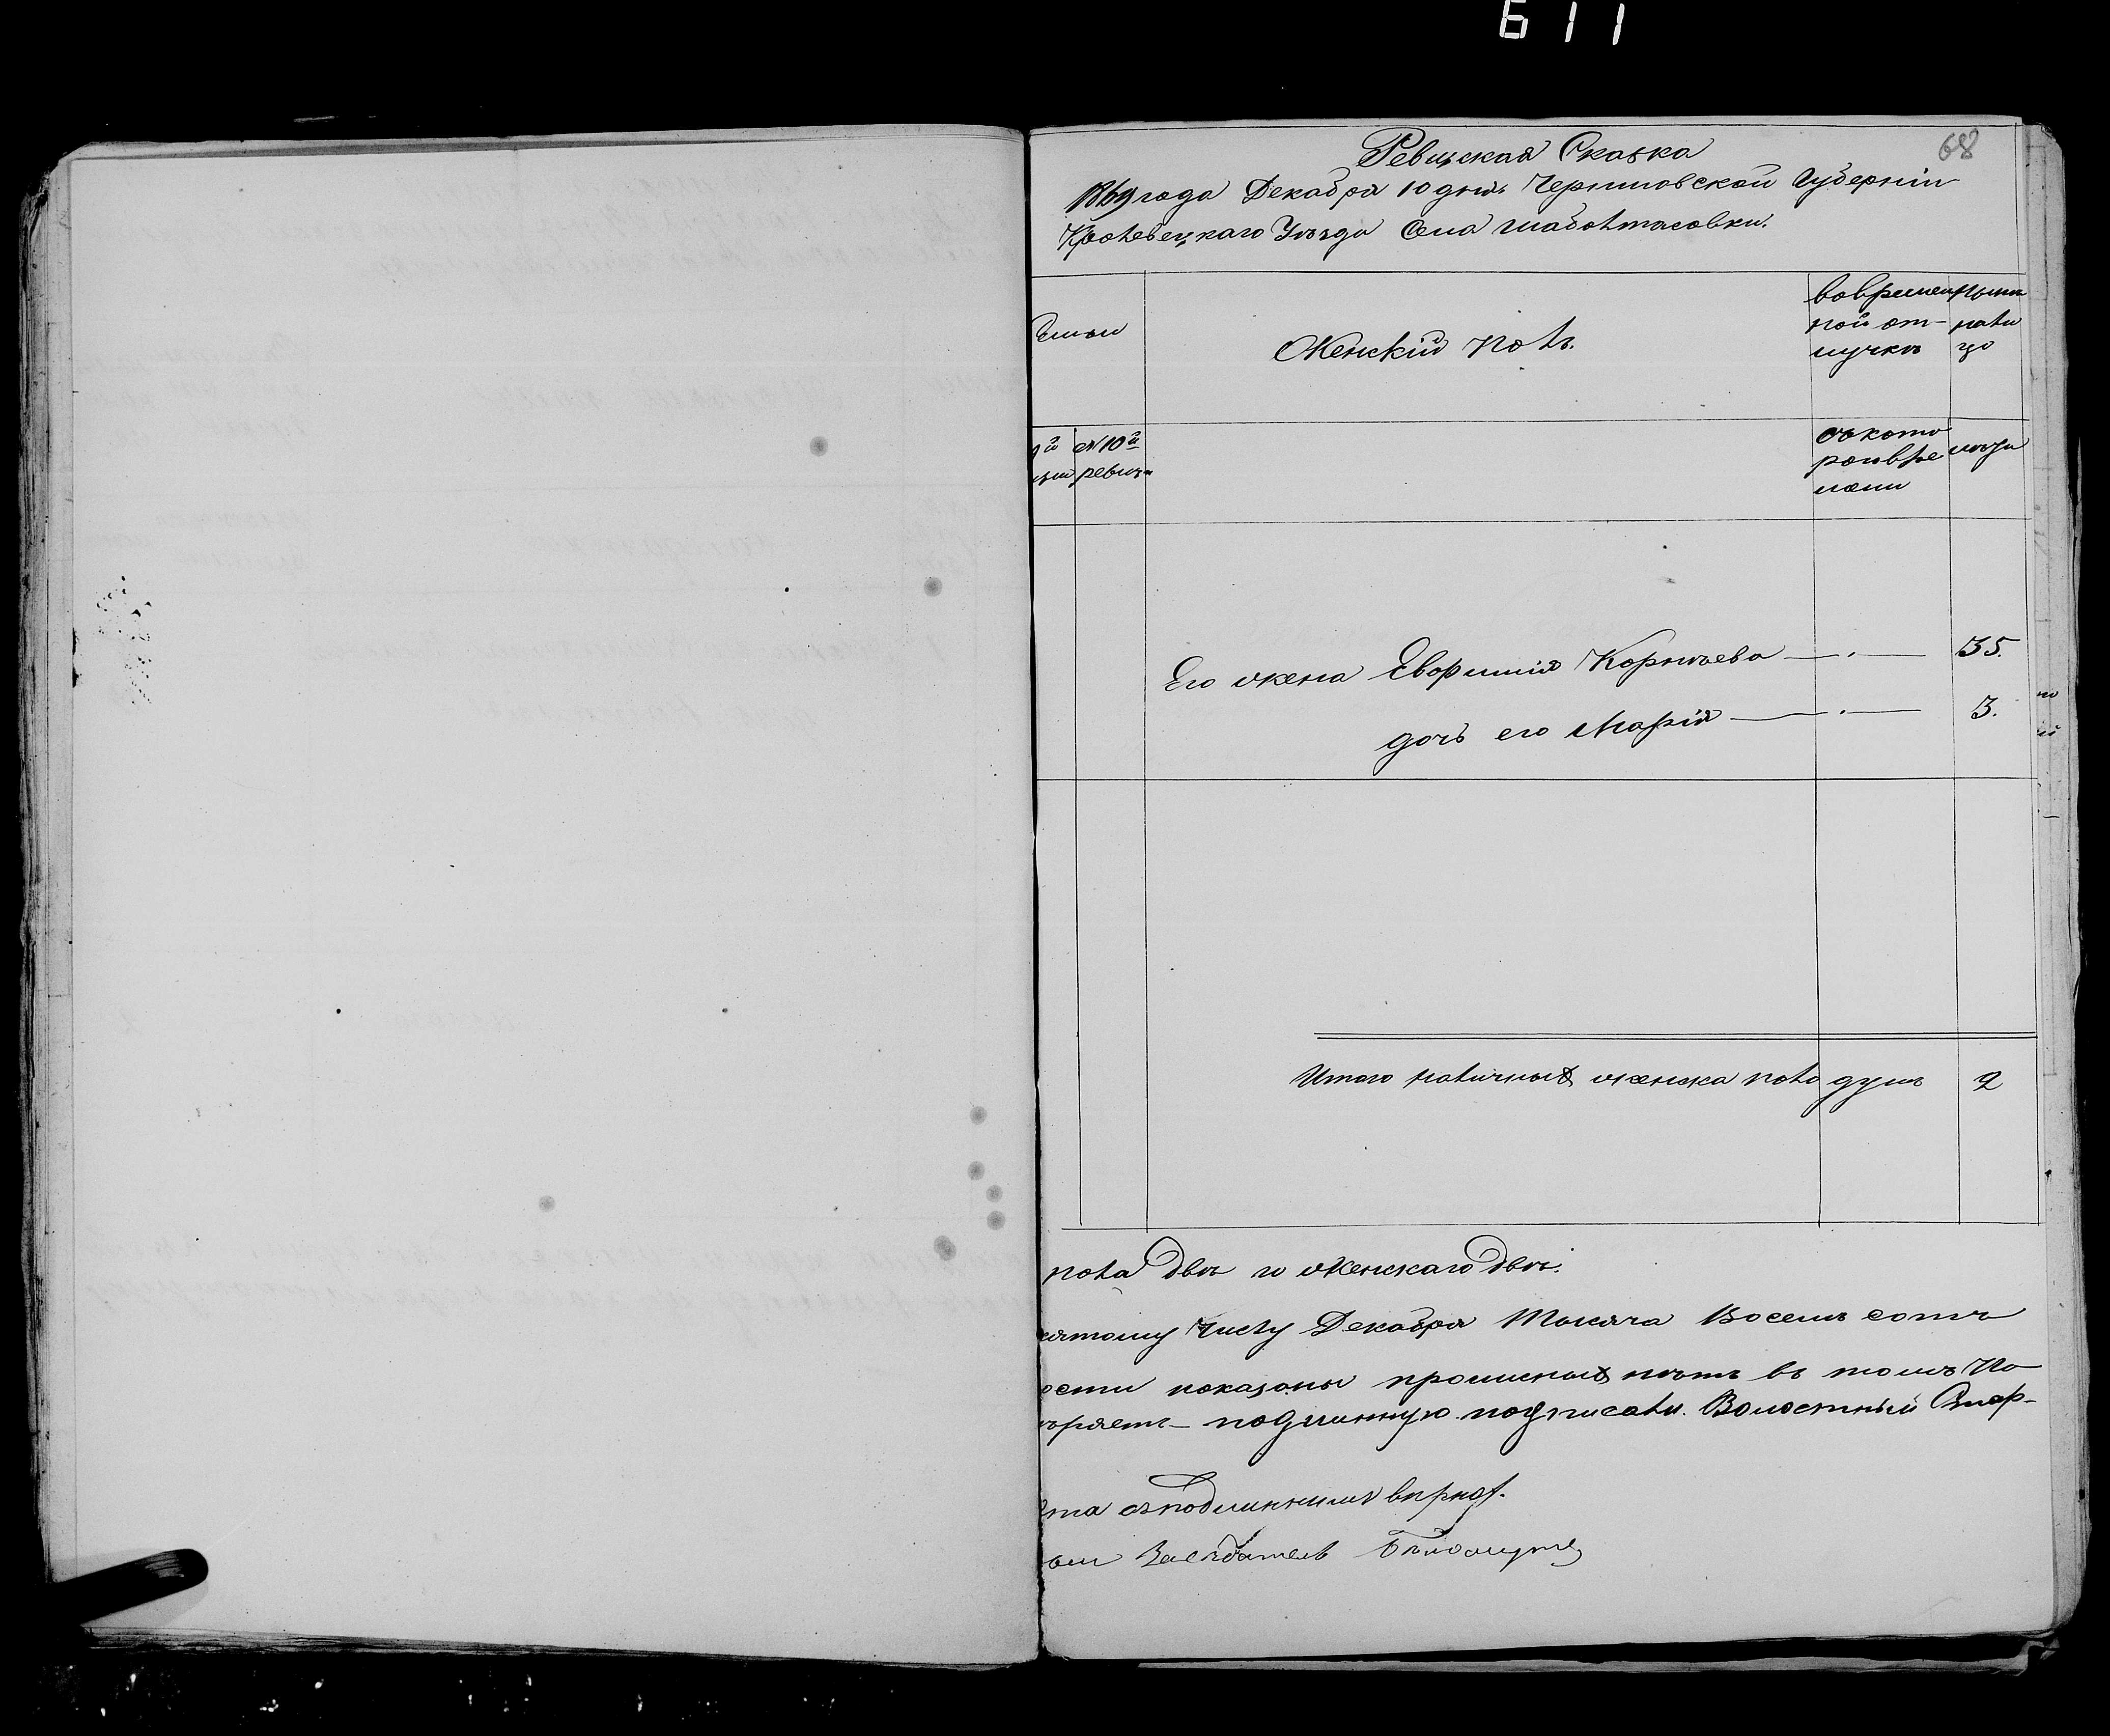 611
68
Ревизская Сказка
1869 года Декабря 10 дня Черниговской Губерніи
Кролевецкаго Уѣзда Села Шабалтасовки.
Женскій полъ.
во времен
ной от-
лучкѣ
нынѣ
нали
цо
й 10й
ревизи
съ кото
раго вре
мени
лѣта
Его жена Евфимія Корнѣева — 35.
дочь его Марія — 3.
Итого наличныхъ женска пола душъ 2
пола двѣ и женскаго двѣ.
числу Декабря Тысяча Восемъ сотъ
показаны прописныхъ нѣтъ въ томъ По
подлинную подписали. Волостный Стар-
съ подлиннымъ вѣрна.
Засѣдатель